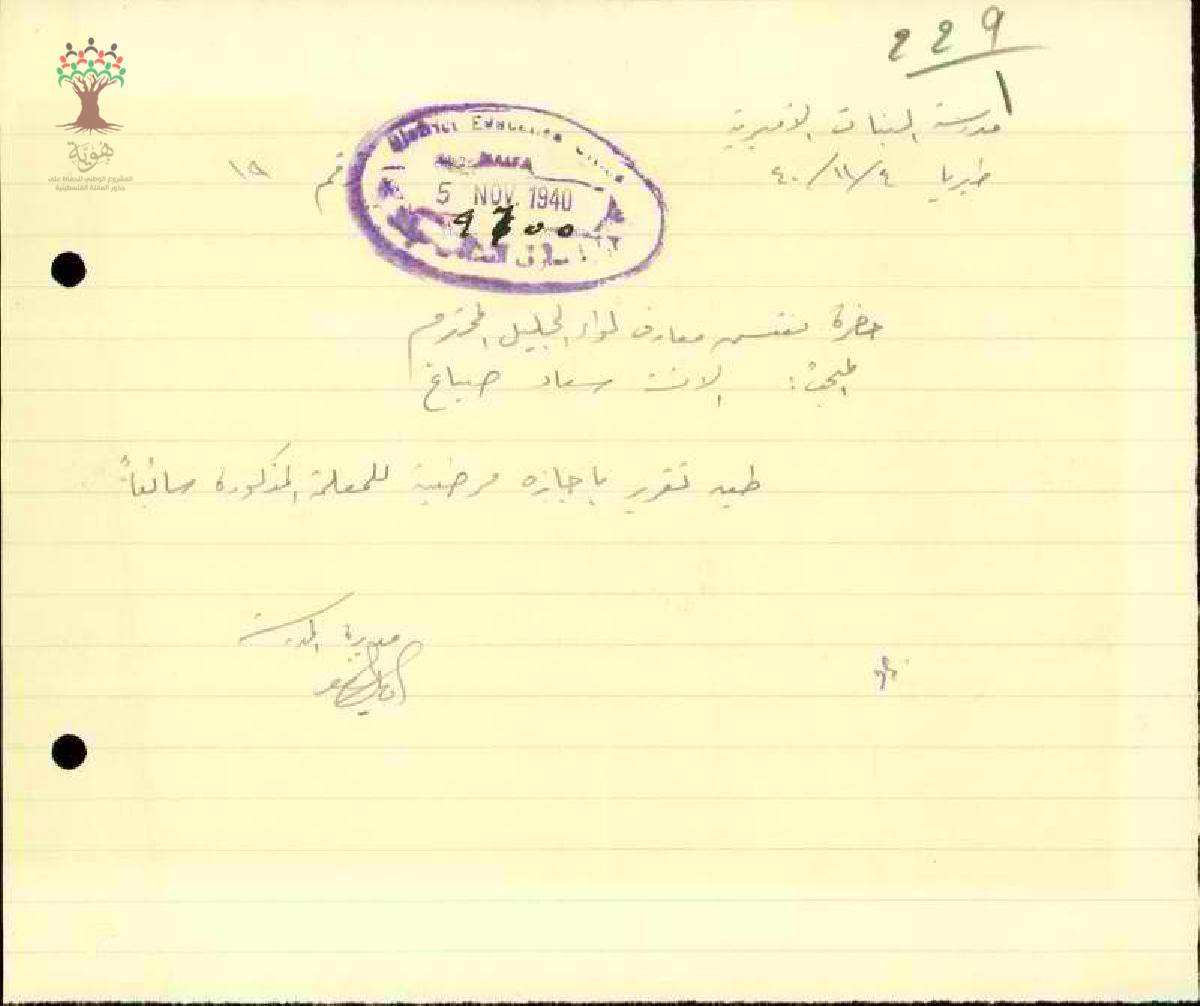 229
1
مدرسة البنات الاميرية
طبريا ٤/١١/٤٠
رقم ١٩
هوية
المشروع الوطني للحفاظ على
جذور العائلة الفلسطينية
District Education Office
HAIFA
5 NOV. 1940
9700
معارف
حضرة مفتش معارف لواء الجليل المحترم
المبحث: الانسة سعاد صباغ
طيه تقرير باجازة مرضية للمعلمة المذكورة سابقاً
مديرة المدرسة